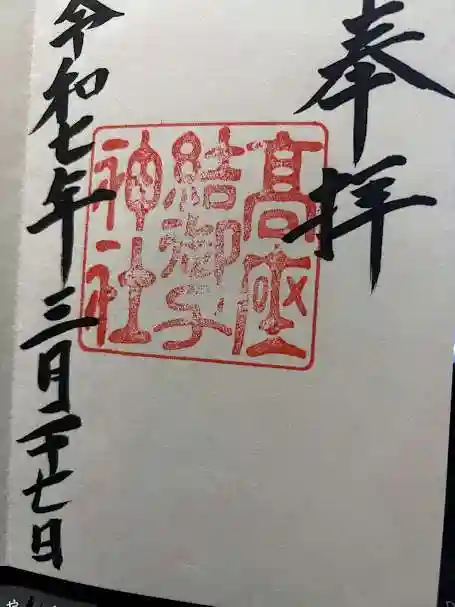 奉拝
高座
結御子
神社
令和七年三月二十七日